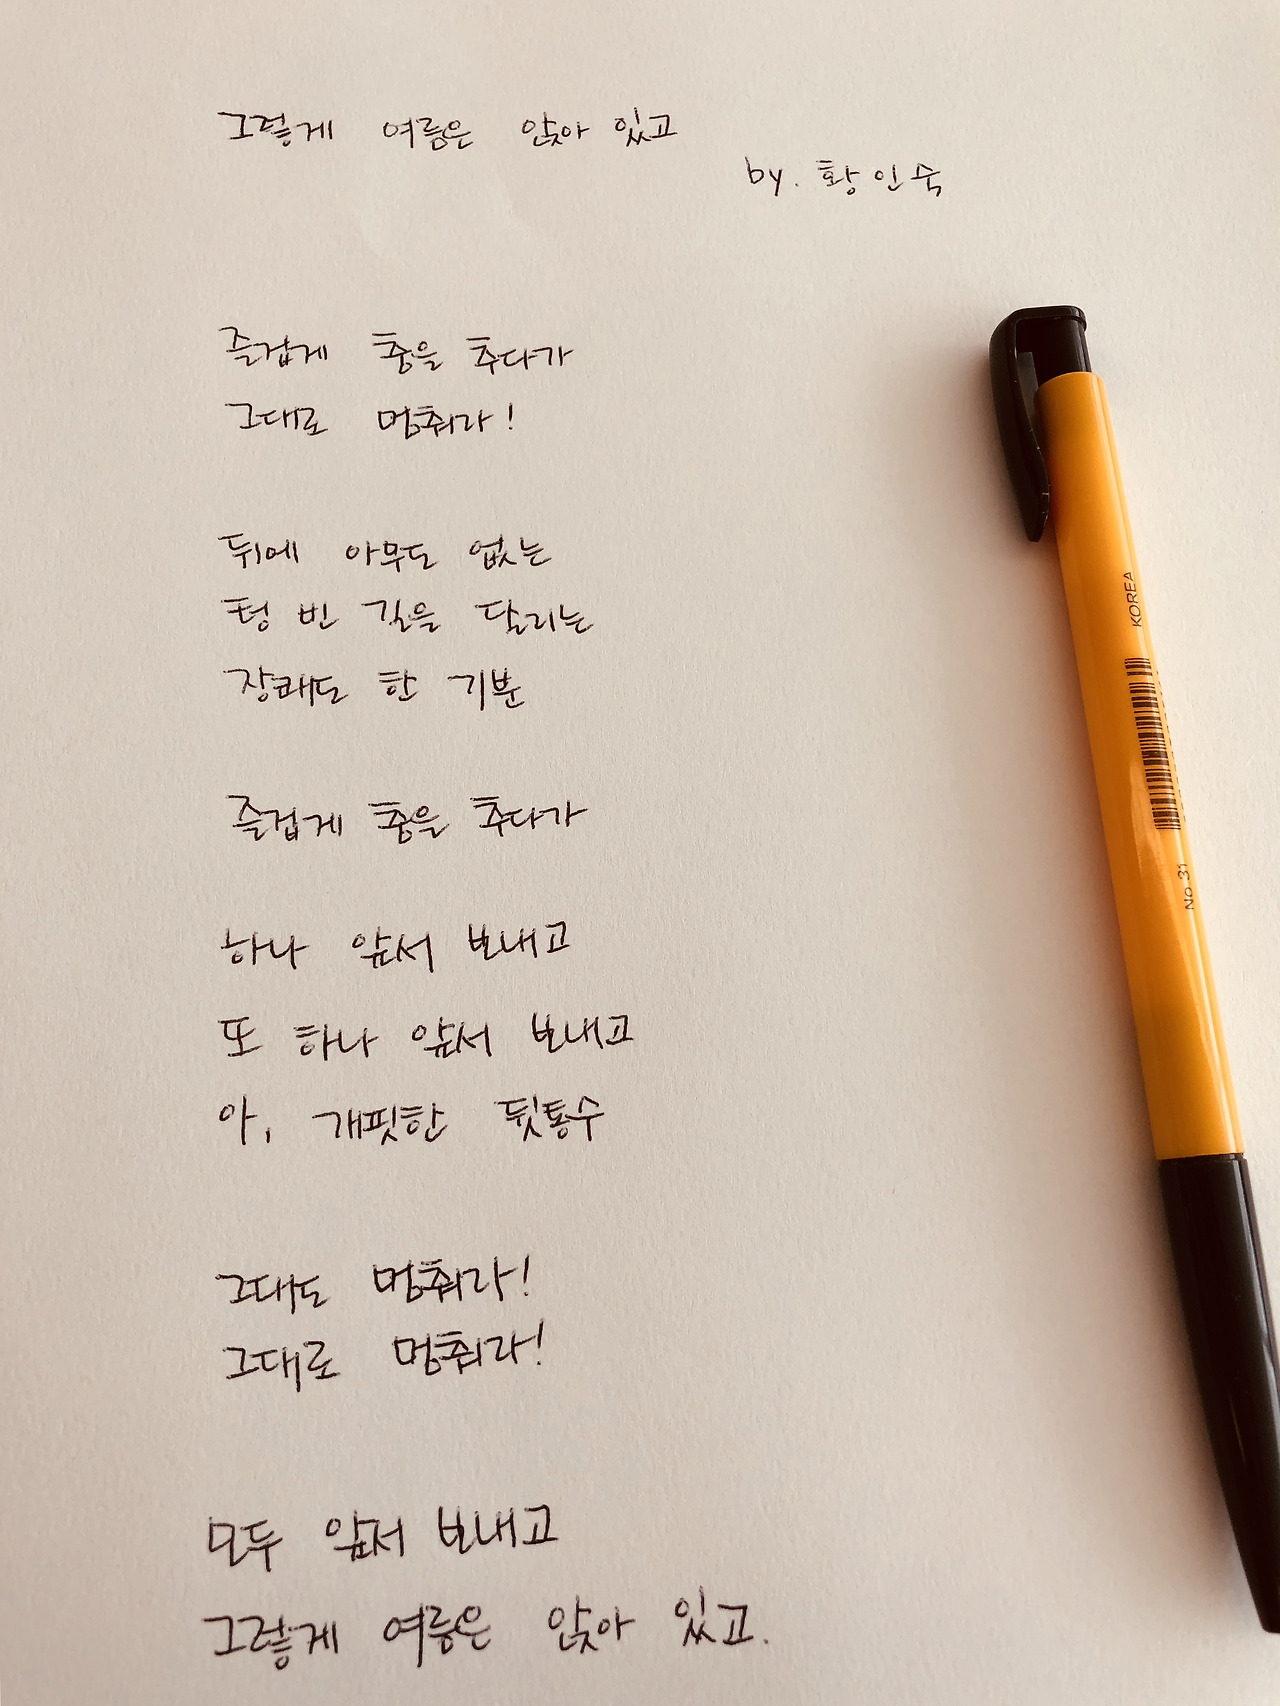 그렇게 여름은 앉아 있고
by. 황인숙
즐겁게 춤을 추다가
그대로 멈춰라!
뒤에 아무도 없는
텅 빈 길을 달리는
장쾌도 한 기분
즐겁게 춤을 추다가
하나 앞서 보내고
또 하나 앞서 보내고
아, 개핏한 뒷통수
그대로 멈춰라!
그대로 멈춰라!
모두 앞서 보내고
그렇게 여름은 앉아 있고.
KOREA
No 31